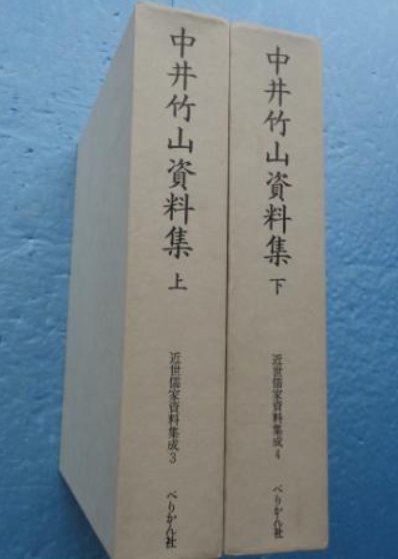 中井竹山資料集 上
近世儒家資料集成3
ぺりかん社
中井竹山資料集 下
近世儒家資料集成4
ぺりかん社